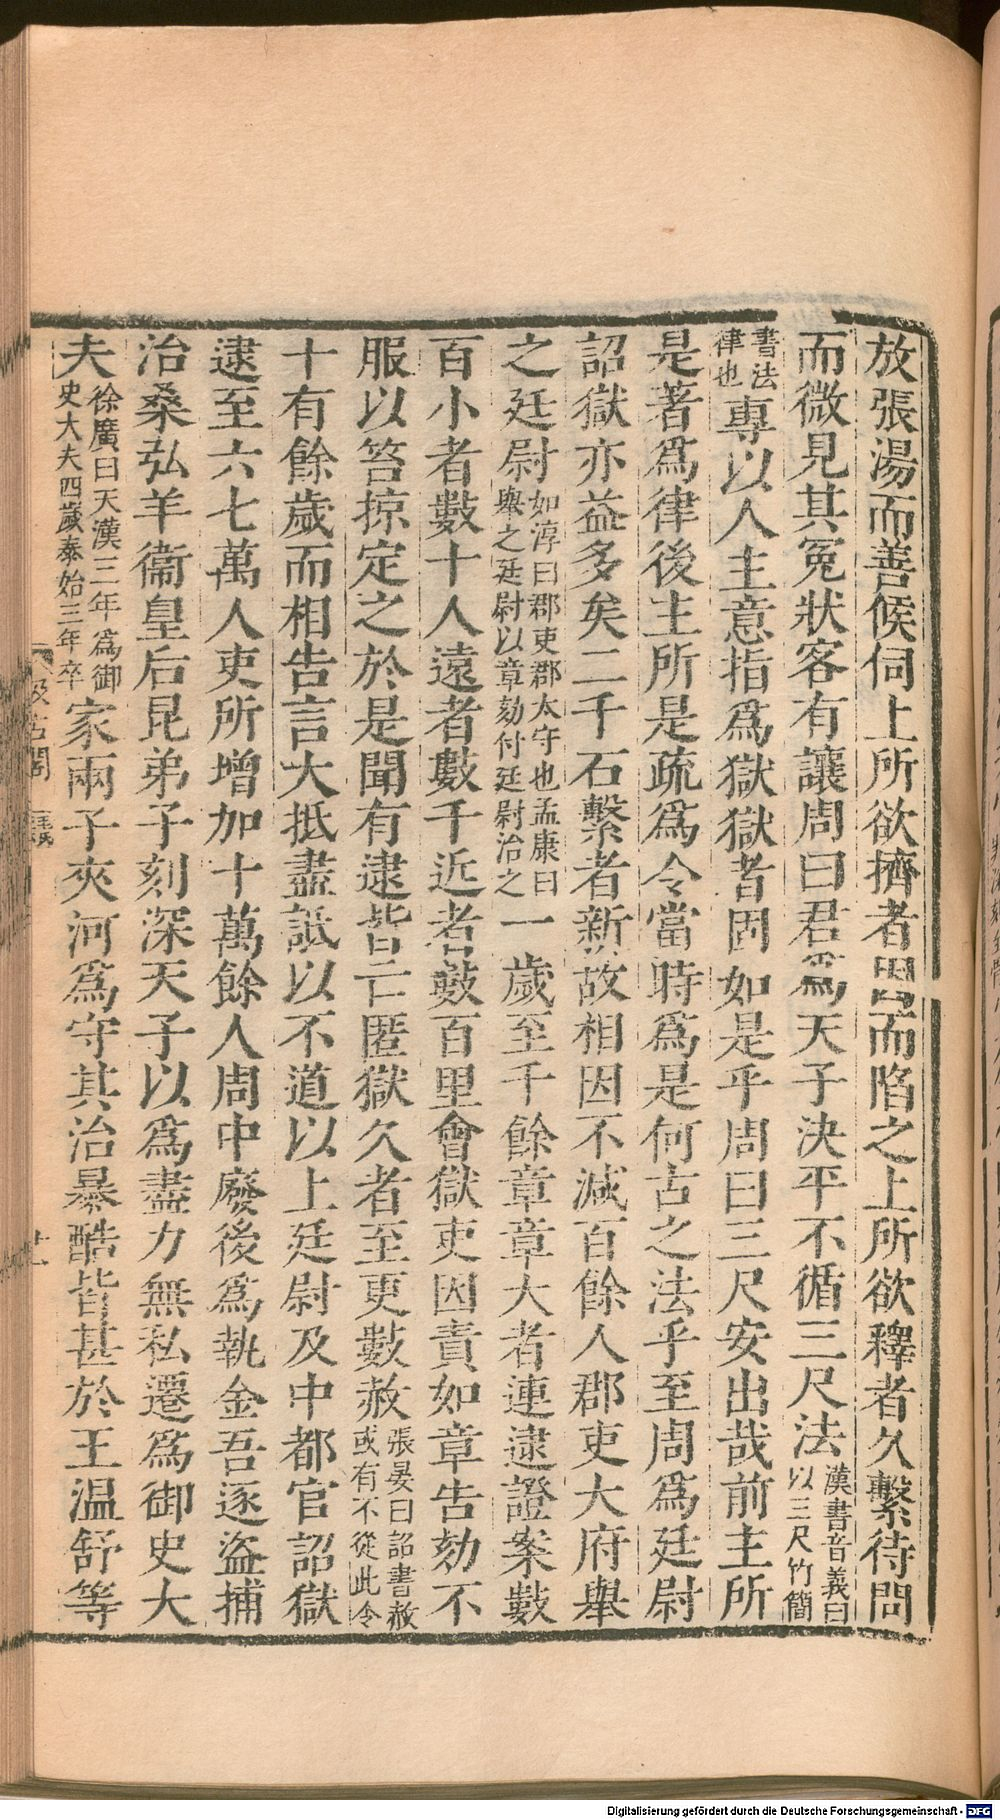 放張湯而善候伺上所欲擠者因而陷之上所欲釋者久繫待問
而微見其冤狀客有讓周曰君爲天子決平不循三尺法漢書音義曰以三尺竹簡
書法律也專以人主意指爲獄獄者固如是乎周曰三尺安出哉前主所
是著爲律後主所是疏爲令當時爲是何古之法乎至周爲廷尉
詔獄亦益多矣二千石繫者新故相因不減百餘人郡吏大府舉
之廷尉如淳曰郡吏郡太守也孟康曰舉之廷尉以章劾付廷尉治之一歲至千餘章章大者連逮證案數
百小者數十人遠者數千近者數百里會獄吏因責如章告劾不
服以笞掠定之於是聞有逮皆亡匿獄久者至更數赦張晏曰詔書赦或有不從此令
十有餘歲而相告言大抵盡詆以不道以上廷尉及中都官詔獄
逮至六七萬人吏所增加十萬餘人周中廢後爲執金吾逐盜捕
治桑弘羊衞皇后昆弟子刻深天子以爲盡力無私遷爲御史大
夫徐廣曰天漢三年爲御史大夫四歲泰始三年卒家兩子夾河爲守其治暴酷皆甚於王温舒等
汲古閣
Digitalisierung gefördert durch die Deutsche Forschungsgemeinschaft - DFG